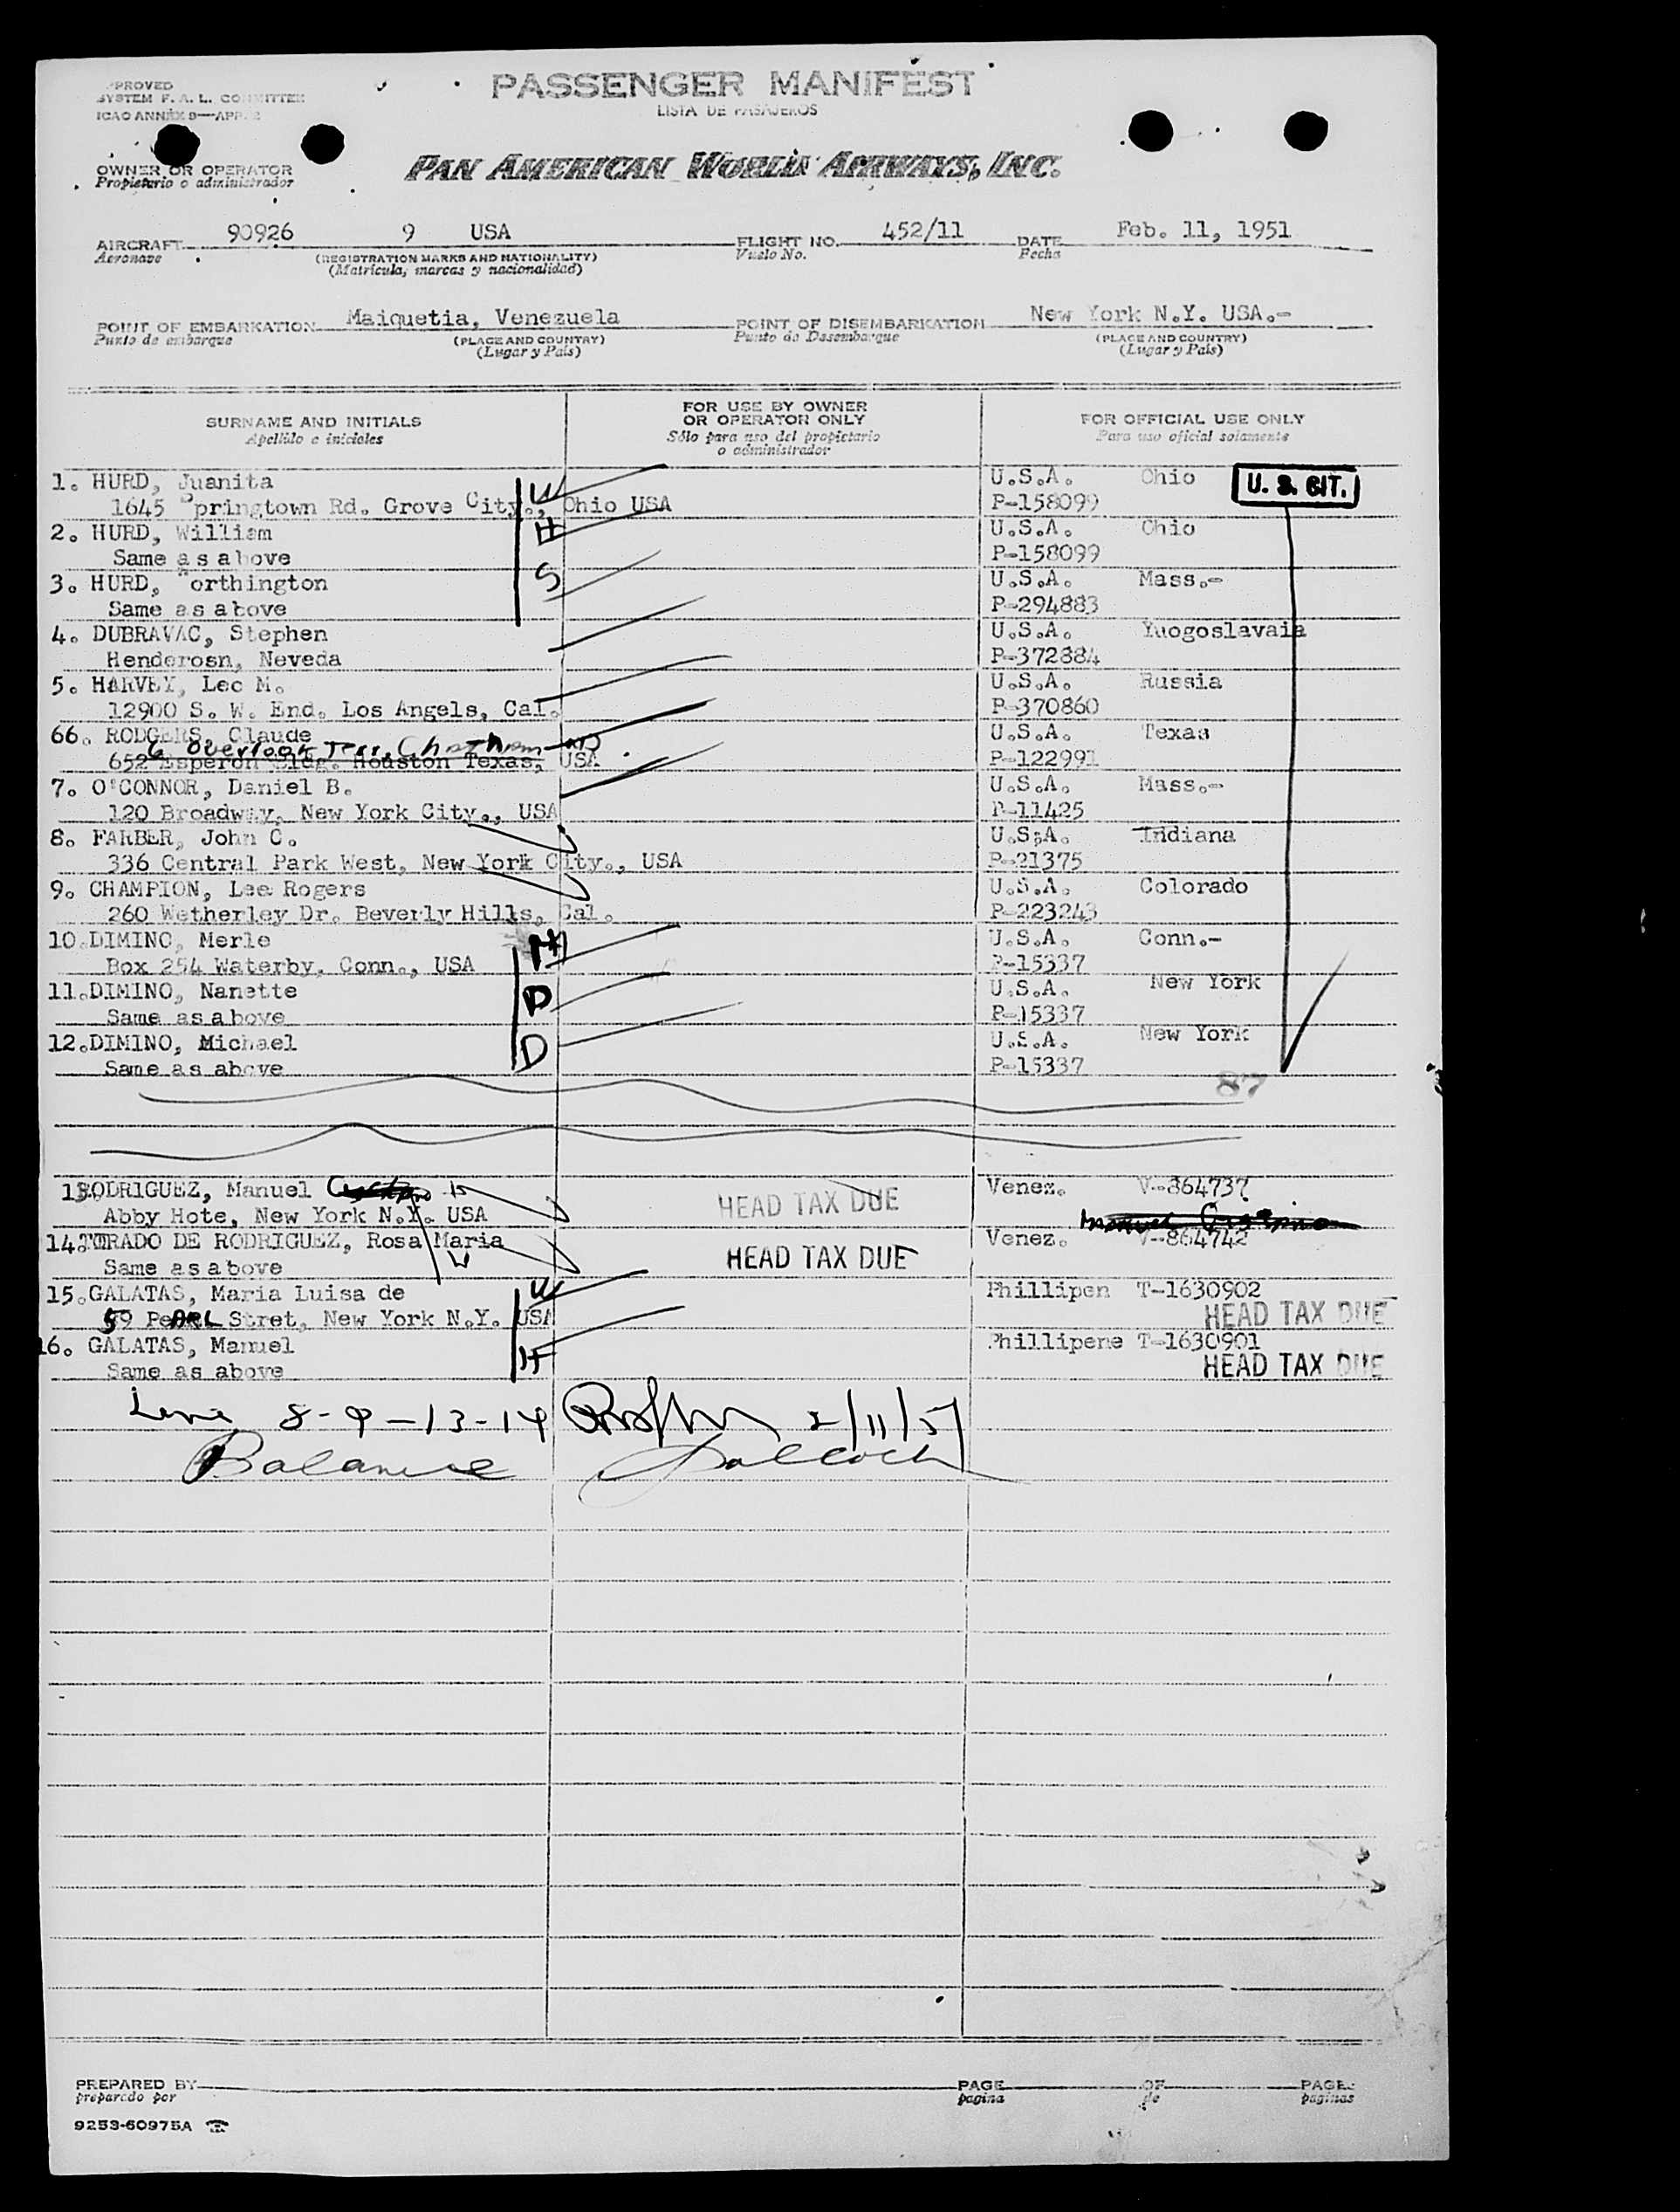 PASSENGER MANIFEST
LISTA DE PASAJEROS
PROVED
SYSTEM F. A. L. COMMITTEE
ICAO ANNEX 9—APP. 2
OWNER OR OPERATOR
Propietario o administrador
PAN AMERICAN WORLD AIRWAYS, INC.
AIRCRAFT 90926 9 USA FLIGHT NO. 452/11 DATE Feb. 11, 1951
Aeronave (REGISTRATION MARKS AND NATIONALITY) Vuelo No. Fecha
(Matrícula, marcas y nacionalidad)
POINT OF EMBARKATION Maiquetia, Venezuela POINT OF DISEMBARKATION New York N.Y. USA.-
Punto de embarque (PLACE AND COUNTRY) Punto de Desembarque (PLACE AND COUNTRY)
(Lugar y País) (Lugar y País)
SURNAME AND INITIALS FOR USE BY OWNER OR OPERATOR ONLY FOR OFFICIAL USE ONLY
Apellido e iniciales Sólo para uso del propietario o administrador Para uso oficial solamente
1. HURD, Juanita W U.S.A. Ohio U. S. CIT.
1645 Springtown Rd. Grove City., Ohio USA P-158099
2. HURD, William H U.S.A. Ohio
Same as above P-158099
3. HURD, Worthington S U.S.A. Mass.-
Same as above P-294883
4. DUBRAVAC, Stephen U.S.A. Yuogoslavaia
Henderosn, Neveda P-372884
5. HARVEY, Leo M. U.S.A. Russia
12900 S. W. End. Los Angels, Cal. P-370860
66. RODGERS, Claude U.S.A. Texas
6 Overlook Terr, Chatham NJ
652 Esperon Bldg. Houston Texas, USA P-122991
7. O'CONNOR, Daniel B. U.S.A. Mass.-
120 Broadway, New York City., USA P-11425
8. FARBER, John C. U.S.A. Indiana
336 Central Park West, New York City., USA P-21375
9. CHAMPION, Lee Rogers U.S.A. Colorado
260 Wetherley Dr. Beverly Hills, Cal. P-223243
10.DIMINO, Merle M U.S.A. Conn.-
Box 254 Waterby. Conn., USA P-15337
11.DIMINO, Nanette D U.S.A. New York
Same as above P-15337
12.DIMINO, Michael D U.S.A. New York
Same as above P-15337
87
13.RODRIGUEZ, Manuel HEAD TAX DUE Venez. V-864737
Abby Hote, New York N.Y. USA
14.TIRADO DE RODRIGUEZ, Rosa Maria HEAD TAX DUE Venez. V-864742
Same as above W
15.GALATAS, Maria Luisa de W Phillipen T-1630902
59 PeARL Stret, New York N.Y. USA HEAD TAX DUE
16. GALATAS, Manuel H Phillipene T-1630901
Same as above HEAD TAX DUE
Line 8-9-13-14 2/11/51
Balance
PREPARED BY PAGE OF PAGES
preparado por pagina de paginas
9253-60975A